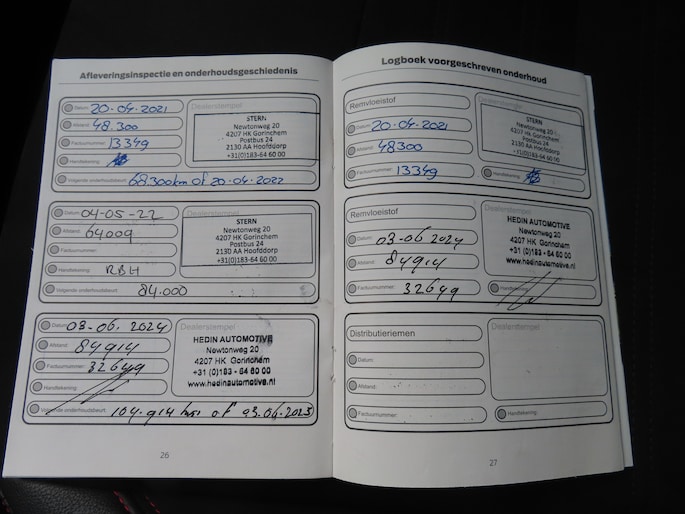 Afleveringsinspectie en onderhoudsgeschiedenis
Datum: 20-04-2021
Afstand: 48.300
Factuurnummer: 13349
Handtekening:
Volgende onderhoudsbeurt: 68.300km of 20-04-2022
Dealerstempel
STERN
Newtonweg 20
4207 HK Gorinchem
Postbus 24
2130 AA Hoofddorp
+31(0)183-64 60 00
Datum: 04-05-22
Afstand: 64009
Factuurnummer:
Handtekening: RBH
Volgende onderhoudsbeurt: 84.000
Dealerstempel
STERN
Newtonweg 20
4207 HK Gorinchem
Postbus 24
2130 AA Hoofddorp
+31(0)183-64 60 00
Datum: 03-06-2024
Afstand: 84914
Factuurnummer: 32649
Handtekening:
Volgende onderhoudsbeurt: 104.914 km of 03.06.2025
Dealerstempel
HEDIN AUTOMOTIVE
Newtonweg 20
4207 HK Gorinchem
+31 (0)183 - 64 60 00
www.hedinautomotive.nl
26
Logboek voorgeschreven onderhoud
Remvloeistof
Datum: 20-04-2021
Afstand: 48300
Factuurnummer: 13349
Dealerstempel
STERN
Newtonweg 20
4207 HK Gorinchem
Postbus 24
2130 AA Hoofddorp
+31(0)183-64 60 00
Handtekening:
Remvloeistof
Datum: 03-06-2024
Afstand: 84914
Factuurnummer: 32649
Dealerstempel
HEDIN AUTOMOTIVE
Newtonweg 20
4207 HK Gorinchem
+31 (0)183 - 64 60 00
www.hedinautomotive.nl
Handtekening:
Distributieriemen
Datum:
Afstand:
Factuurnummer:
Dealerstempel
Handtekening:
27